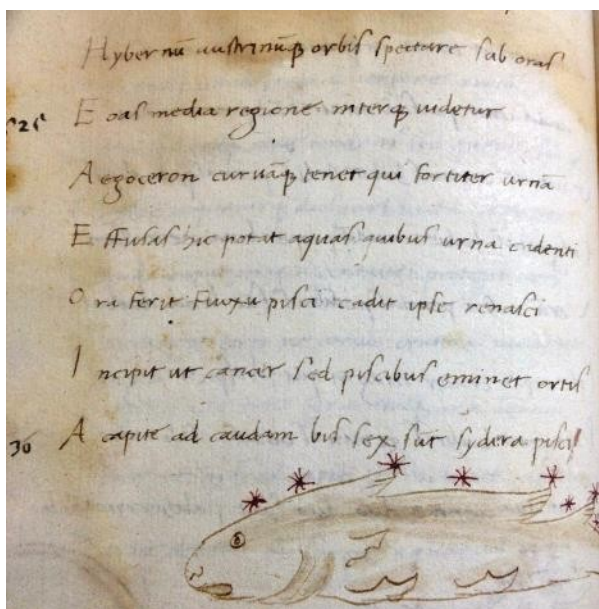 Hybernū austrinūqꝫ orbis spectare sub oras
525 Eoas media regione interqꝫ videtur
Aegoceron curvāqꝫ tenet qui fortiter urnā
Effusas hic potat aquas quibus urna cadenti
Ora ferit fluxu pisci cadit ipse renasci
Incipit ut cancer sed piscibus eminet ortis
30 A capite ad caudam bis sex sūt sydera pisci